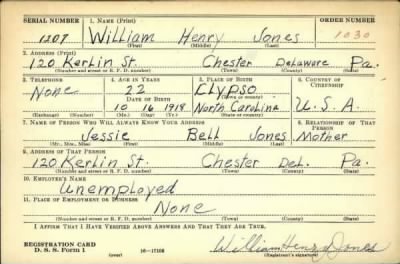 SERIAL NUMBER 1. NAME (Print) ORDER NUMBER
1207 William Henry Jones 1030
(First) (Middle) (Last)
2. ADDRESS (Print)
120 Kerlin St. Chester Delaware Pa.
(Number and street or R. F. D. number) (Town) (County) (State)
3. TELEPHONE 4. AGE IN YEARS 5. PLACE OF BIRTH 6. COUNTRY OF CITIZENSHIP
None 22 Clypso
DATE OF BIRTH (Town or county)
10 16 1918 North Carolina U.S.A.
(Exchange) (Number) (Mo.) (Day) (Yr.) (State or country)
7. NAME OF PERSON WHO WILL ALWAYS KNOW YOUR ADDRESS 8. RELATIONSHIP OF THAT PERSON
Jessie Bell Jones Mother
(Mr., Mrs., Miss) (First) (Middle) (Last)
9. ADDRESS OF THAT PERSON
120 Kerlin St. Chester Del. Pa.
(Number and street or R. F. D. number) (Town) (County) (State)
10. EMPLOYER'S NAME
Unemployed
11. PLACE OF EMPLOYMENT OR BUSINESS
None
(Number and street or R. F. D. number) (Town) (County) (State)
I AFFIRM THAT I HAVE VERIFIED ABOVE ANSWERS AND THAT THEY ARE TRUE.
REGISTRATION CARD
D. S. S. Form 1 (over) 16—17105 William Henry Jones
(Registrant's signature)